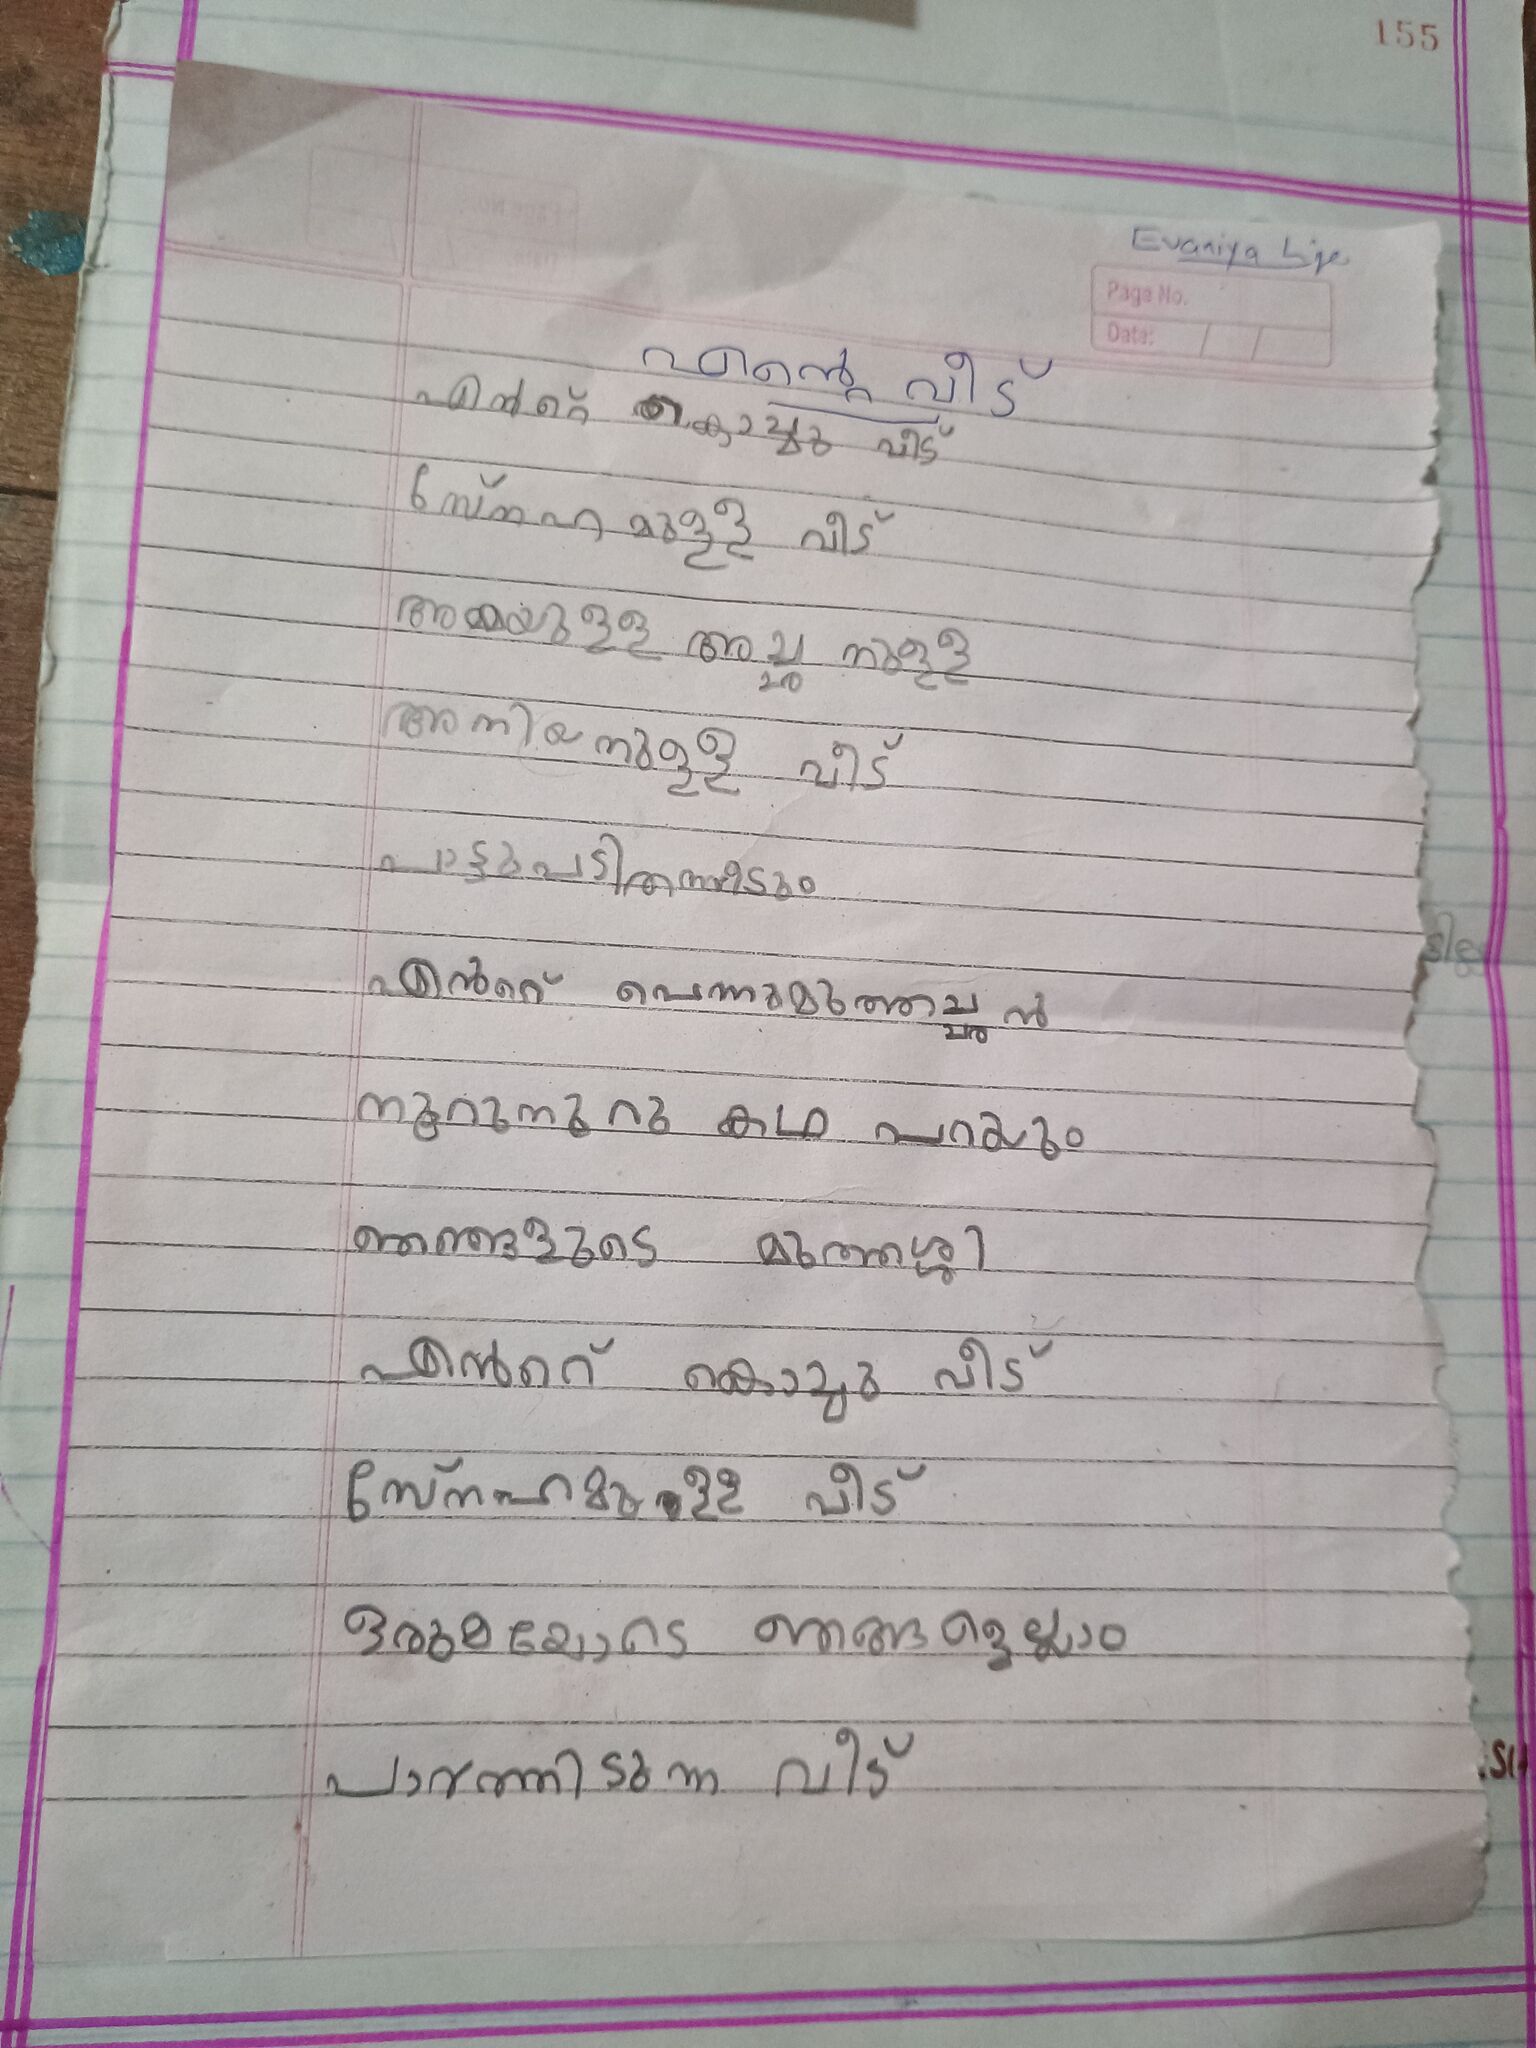 155
Evaniya Lije
Page No.
Date:
എന്റെ വീട്
എൻറെ കൊച്ചു വീട്
സ്നേഹമുള്ള വീട്
അമ്മയുള്ള അച്ഛനുള്ള
അനിയനുള്ള വീട്
പാട്ടുപാടിതന്നീടും
എൻറെ പൊന്നുമുത്തച്ഛൻ
നൂറുനൂറു കഥ പറയും
ഞങ്ങളുടെ മുത്തശ്ശി
എൻറെ കൊച്ചു വീട്
സ്നേഹമുള്ള വീട്
ഒരുമയോടെ ഞങ്ങളെല്ലാം
പാർത്തിടുന്ന വീട്